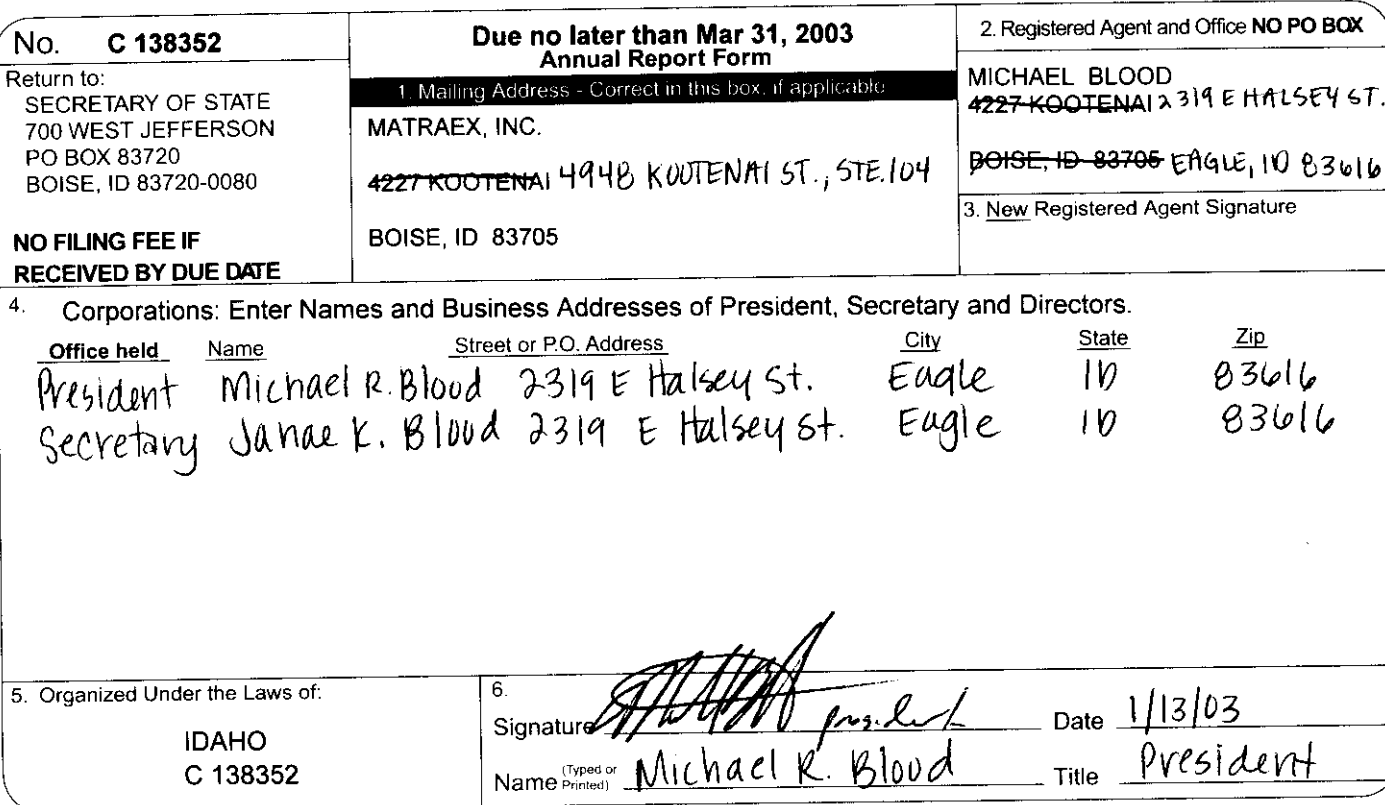 No. C 138352
Return to:
SECRETARY OF STATE
700 WEST JEFFERSON
PO BOX 83720
BOISE, ID 83720-0080
NO FILING FEE IF
RECEIVED BY DUE DATE
Due no later than Mar 31, 2003
Annual Report Form
1. Mailing Address - Correct in this box, if applicable
MATRAEX, INC.
4227 KOOTENAI 4948 KOOTENAI ST., STE.104
BOISE, ID 83705
2. Registered Agent and Office NO PO BOX
MICHAEL BLOOD
4227 KOOTENAI 2319 E HALSEY ST.
BOISE, ID 83705 EAGLE, ID 83616
3. New Registered Agent Signature
4. Corporations: Enter Names and Business Addresses of President, Secretary and Directors.
Office held Name Street or P.O. Address City State Zip
President Michael R. Blood 2319 E Halsey St. Eagle ID 83616
Secretary Janae K. Blood 2319 E Halsey St. Eagle ID 83616
5. Organized Under the Laws of:
IDAHO
C 138352
6.
Signature president Date 1/13/03
Name (Typed or Printed) Michael R. Blood Title President